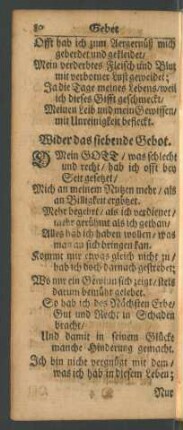 80 Gebet
Offt hab ich zum Aergernüß mich
geberdet und gekleidet/
Mein verderbtes Fleisch und Blut
mit verbotner Lust geweidet;
Ja die Tage meines Lebens/weil
ich dieses Gifft geschmeckt/
Meinen Leib und mein Gewissen/
mit Unreinigkeit befleckt.
Wider das siebende Gebot.
O Mein GOTT/was schlecht
und recht/hab ich offt bey
Seit gesetzet/
Mich an meinem Nutzen mehr/als
an Billigkeit ergötzet.
Mehr begehrt/als ich verdienet/
mehr gerühmt als ich gethan/
Alles hab ich haben wollen/was
man an sich bringen kan.
Kommt mir etwas gleich nicht zu/
hab ich doch darnach gestrebet;
Wo nur ein Gewinn sich zeigt/stets
darum bemüht gelebet.
So hab ich des Nächsten Erbe/
Gut und Recht in Schaden
bracht/
Und damit in seinem Glücke
manche Hinderung gemacht.
Ich bin nicht vergnügt mit dem/
was ich hab in diesem Leben;
Nur